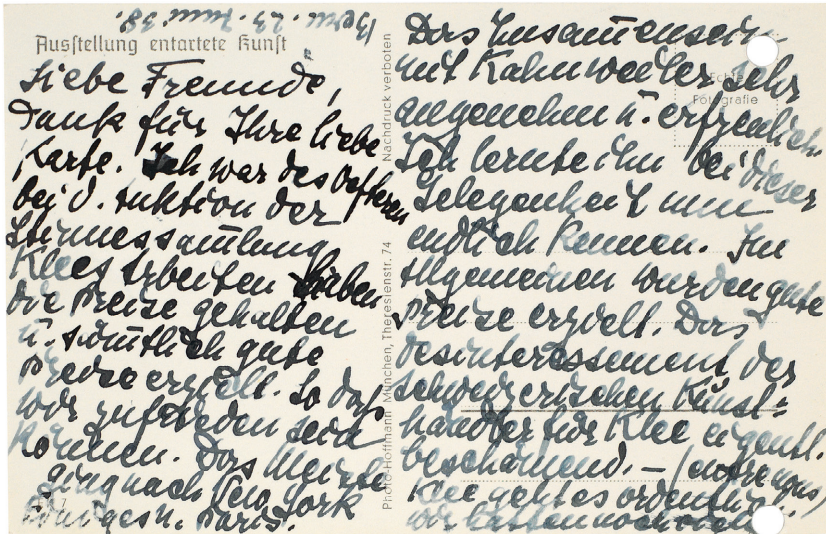 Bern. 23. Juni 38.
Ausstellung entartete Kunst
Liebe Freunde,
Dank für Ihre liebe
Karte. Ich war des Oefteren
bei d. Auktion der
Stinnessammlung
Klees Arbeiten haben
die Preise gehalten
u. sämtlich gute
Preise erzielt. So daß
wir zufrieden sein
können. Das Meiste
ging nach New York
Einiges n. Paris.
Nachdruck verboten
Photo-Hoffmann München, Theresienstr. 74
Echte
Fotografie
Das Zusammensein
mit Kahnweiler sehr
angenehm u. erfreulich.
Ich lernte ihn bei dieser
Gelegenheit nun
endlich kennen. Im
Allgemeinen wurden gute
Preise erzielt. Das
Desinteressement der
schweizerischen Kunst-
händler für Klee eigentl.
beschämend. – (entre nous)
Klee geht es ordentlich.
wir hatten noch